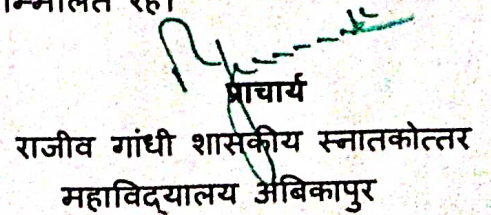 म्मिलित रहे।
प्राचार्य
राजीव गांधी शासकीय स्नातकोत्तर
महाविद्यालय अंबिकापुर